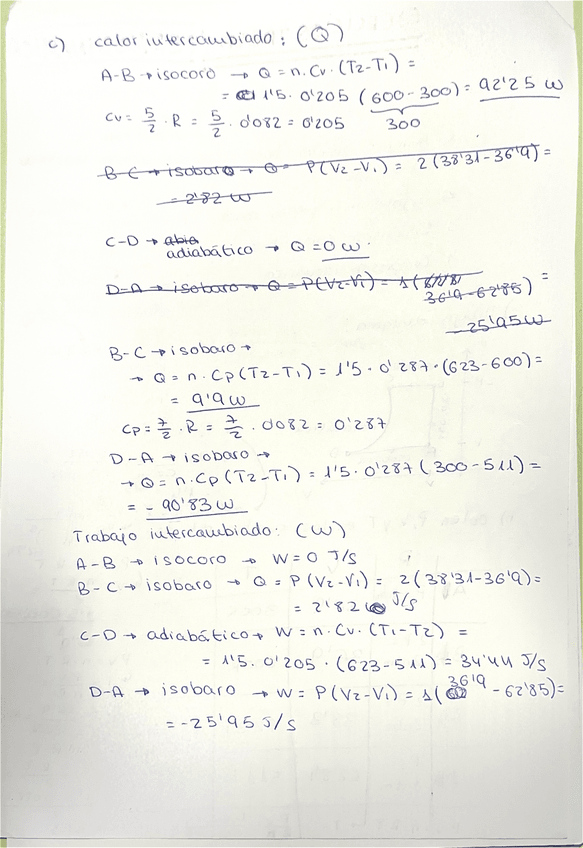 c) calor intercambiado: (Q)
A-B → isocoro → Q = n·Cv·(T2-T1) =
= 1'5·0'205 (600-300) = 92'25 W
300
Cv = 5/2 · R = 5/2 · 0'082 = 0'205
B-C → isobaro → Q = P(V2-V1) = 2(38'31-36'9) =
= 2'82 W
C-D → abia
adiabático → Q = 0 W.
D-A → isobaro → Q = P(V2-V1) = 1(
36'9-62'85) =
25'95 W
B-C → isobaro →
→ Q = n·Cp(T2-T1) = 1'5·0'287·(623-600) =
= 9'9 W
Cp = 7/2 · R = 7/2 · 0'082 = 0'287
D-A → isobaro →
→ Q = n·Cp(T2-T1) = 1'5·0'287(300-511) =
= -90'83 W
Trabajo intercambiado: (W)
A-B → isocoro → W = 0 J/S
B-C → isobaro → Q = P(V2-V1) = 2(38'31-36'9) =
= 2'82 J/S
C-D → adiabático → W = n·Cv·(T1-T2) =
= 1'5·0'205·(623-511) = 34'44 J/S
D-A → isobaro → W = P(V2-V1) = 1(36'9-62'85) =
= -25'95 J/S